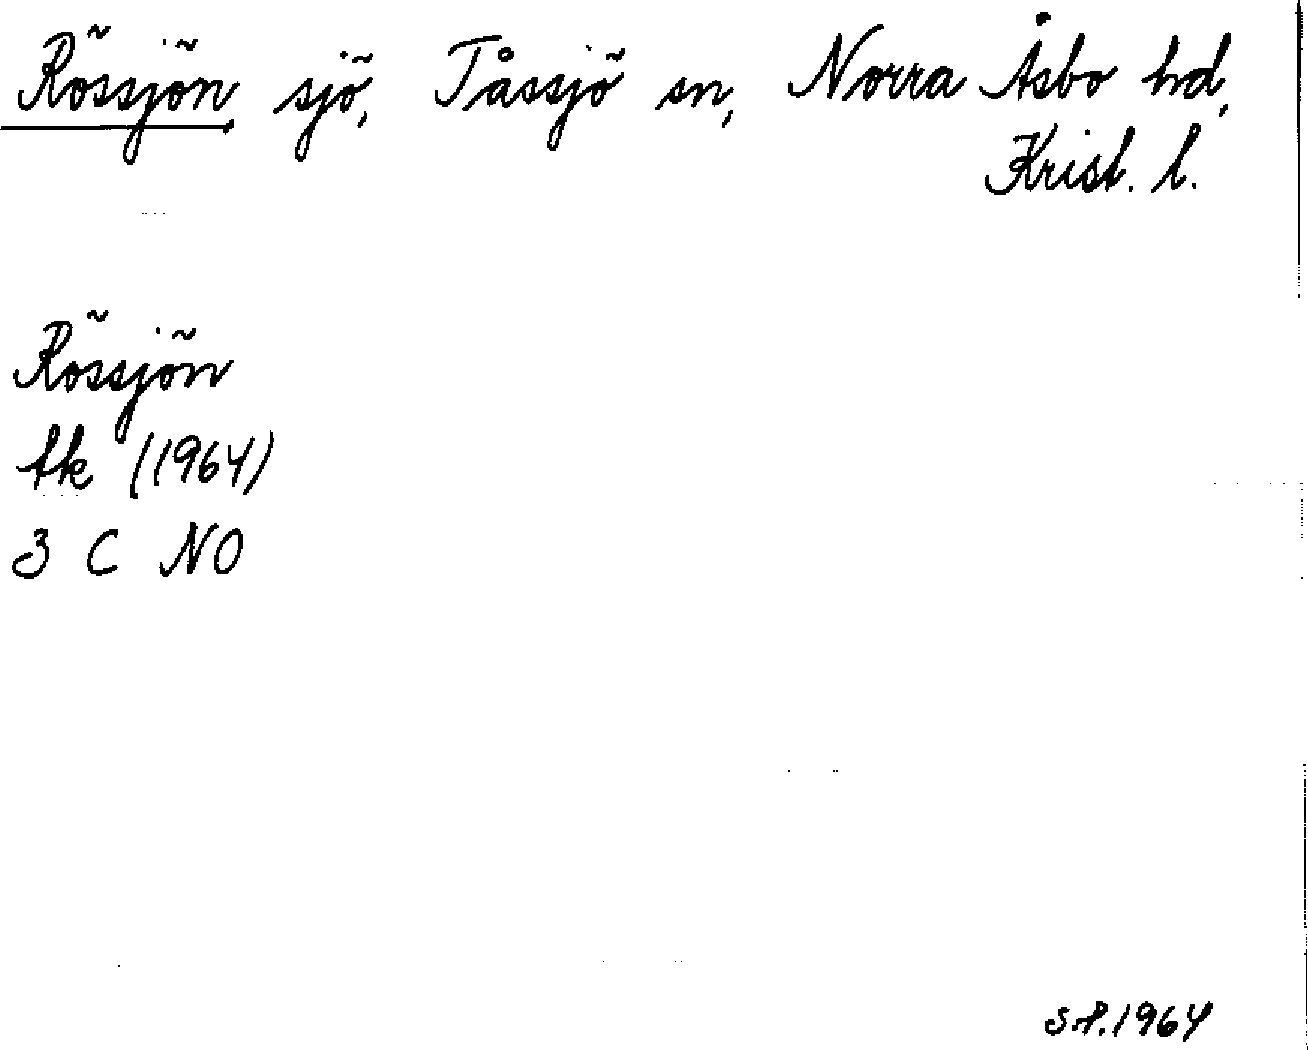 Rössjön, sjö, Tåssjö sn, Norra Åsbo hd,
Krist. l.
Rössjön
tk (1964)
3 C NO
S.P. 1964